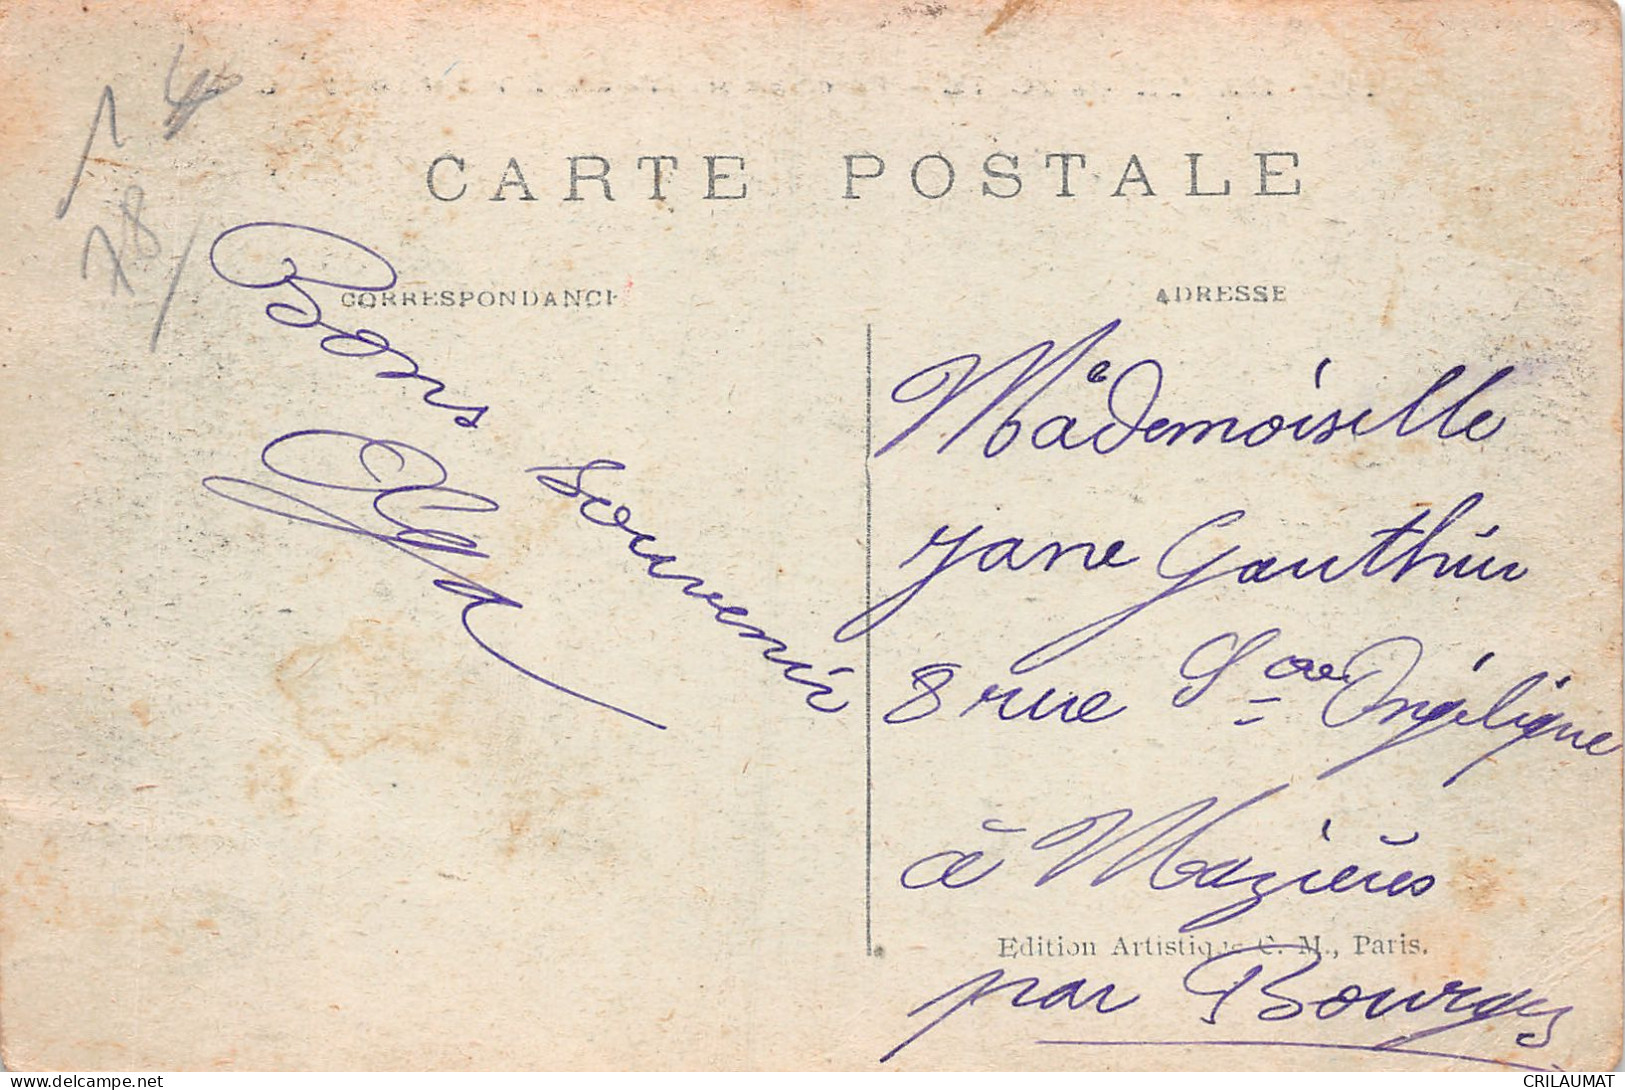 CARTE POSTALE
CORRESPONDANCE
ADRESSE
Bons souvenir
Olga
Mademoiselle
Jane Gauthier
8 rue Ste Angélique
à Mazières
Edition Artistique C. M., Paris.
par Bourges
78
CRILAUMAT